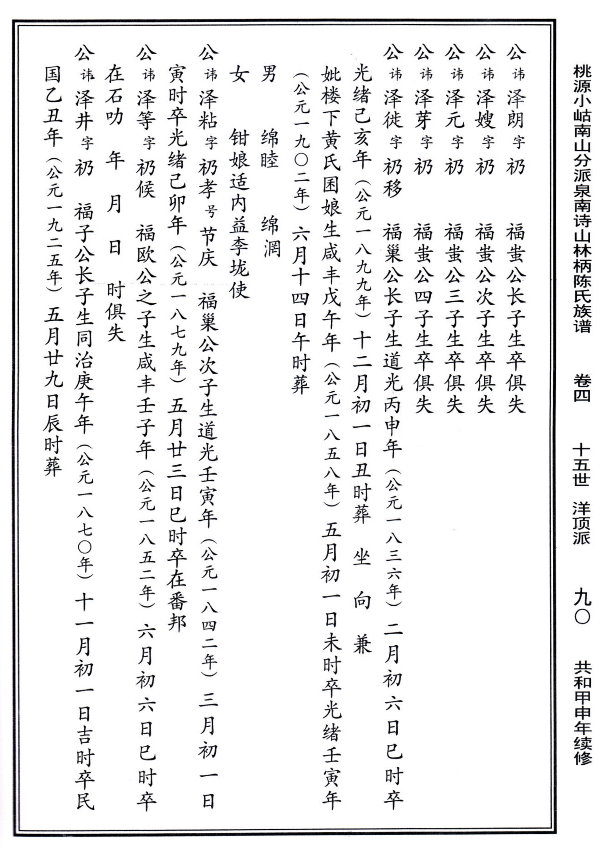 桃源小岵南山分派泉南诗山林柄陈氏族谱 卷四 十五世 洋顶派 九〇 共和甲申年续修
公讳泽朗字礽 福蚩公长子生卒俱失
公讳泽嫂字礽 福蚩公次子生卒俱失
公讳泽元字礽 福蚩公三子生卒俱失
公讳泽芽字礽 福蚩公四子生卒俱失
公讳泽徙字礽移 福巢公长子生道光丙申年（公元一八三六年）二月初六日巳时卒
光绪己亥年（公元一八九九年）十二月初一日丑时葬 坐 向 兼
妣楼下黄氏困娘生咸丰戊午年（公元一八五八年）五月初一日未时卒光绪壬寅年
（公元一九〇二年）六月十四日午时葬
男 绵睦 绵润
女 钳娘适内益李垅使
公讳泽粘字礽孝号节庆 福巢公次子生道光壬寅年（公元一八四二年）三月初一日
寅时卒光绪己卯年（公元一八七九年）五月廿三日巳时卒在番邦
公讳泽等字礽候 福欧公之子生咸丰壬子年（公元一八五二年）六月初六日巳时卒
在石叻 年 月 日 时俱失
公讳泽井字礽 福子公长子生同治庚午年（公元一八七〇年）十一月初一日吉时卒民
国乙丑年（公元一九二五年）五月廿九日辰时葬